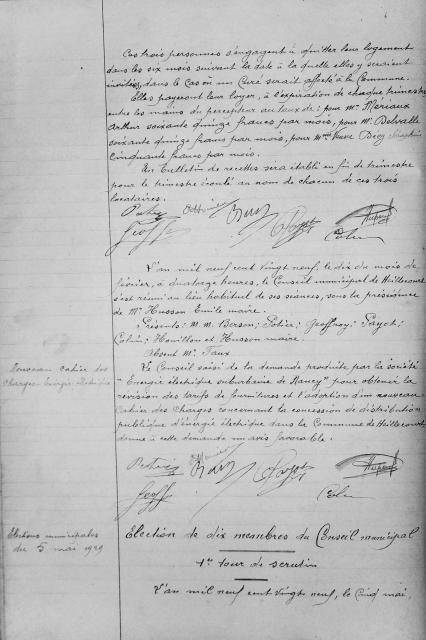 Ces trois personnes s'engagent à quitter leur logement
dans les six mois suivant la date à laquelle elles y seraient
invitées, dans le cas où un Curé serait affecté à la Commune.
Elles payeront leur loyer, à l'expiration de chaque trimestre
entre les mains du percepteur au taux de : pour Mr Mériaux
Arthur soixante quinze francs par mois, pour Mr Delvalle
soixante quinze francs par mois, pour Mme Veuve
Cinquante francs par mois.
Un bulletin de recettes sera établi en fin de trimestre
pour le trimestre écoulé au nom de chacun de ces trois
locataires.
L'an mil neuf cent vingt neuf, le dix du mois de
février, à quatorze heures, le Conseil municipal de Heillecourt
s'est réuni au lieu habituel de ses séances, sous la présidence
de Mr Husson Emile maire.
Présents : M.M. Berson ; Potier ; Geoffroy ; Payot ;
Colin ; Houillon et Husson maire.
Absent Mr Taux
Nouveau cahier des
Charges Energie électrique
Le Conseil saisi de la demande produite par la société
"Energie électrique suburbaine de Nancy" pour obtenir la
révision des tarifs de fournitures et l'adoption d'un nouveau
Cahier des Charges concernant la concession de distribution
publique d'énergie électrique dans la Commune de Heillecourt
donne à cette demande un avis favorable.
Elections municipales
du 5 mai 1929
Election de dix membres du Conseil municipal
1er tour de scrutin
L'an mil neuf cent vingt neuf, le cinq mai,